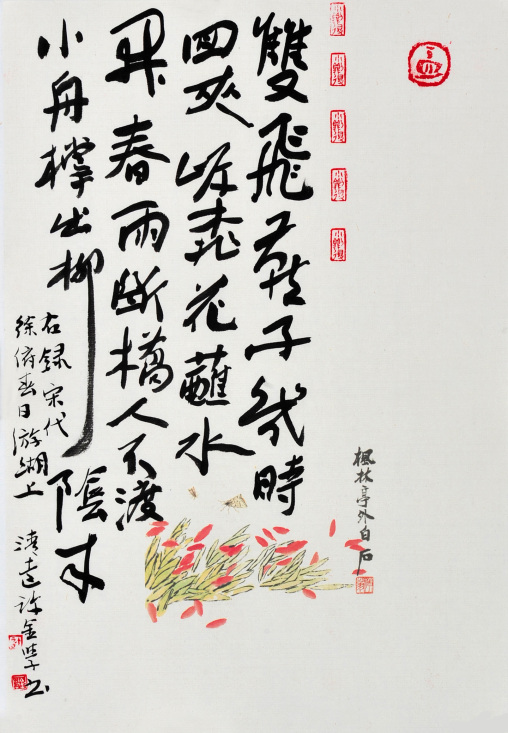 楓林亭外白石
雙飛燕子幾時
回夾岸桃花蘸水
開春雨斷橋人不渡
小舟撐出柳陰来
右録宋代
徐俯春日游湖上